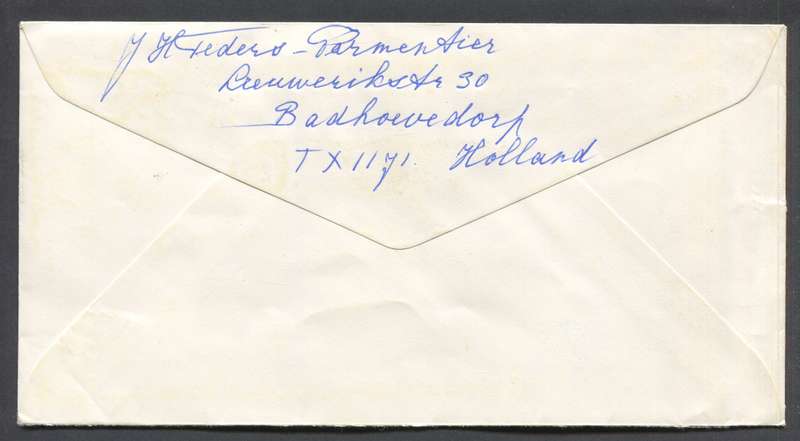 J H Feders-Parmentier
Leeuwerikstr 30
Badhoevedorp
TX 1171. Holland